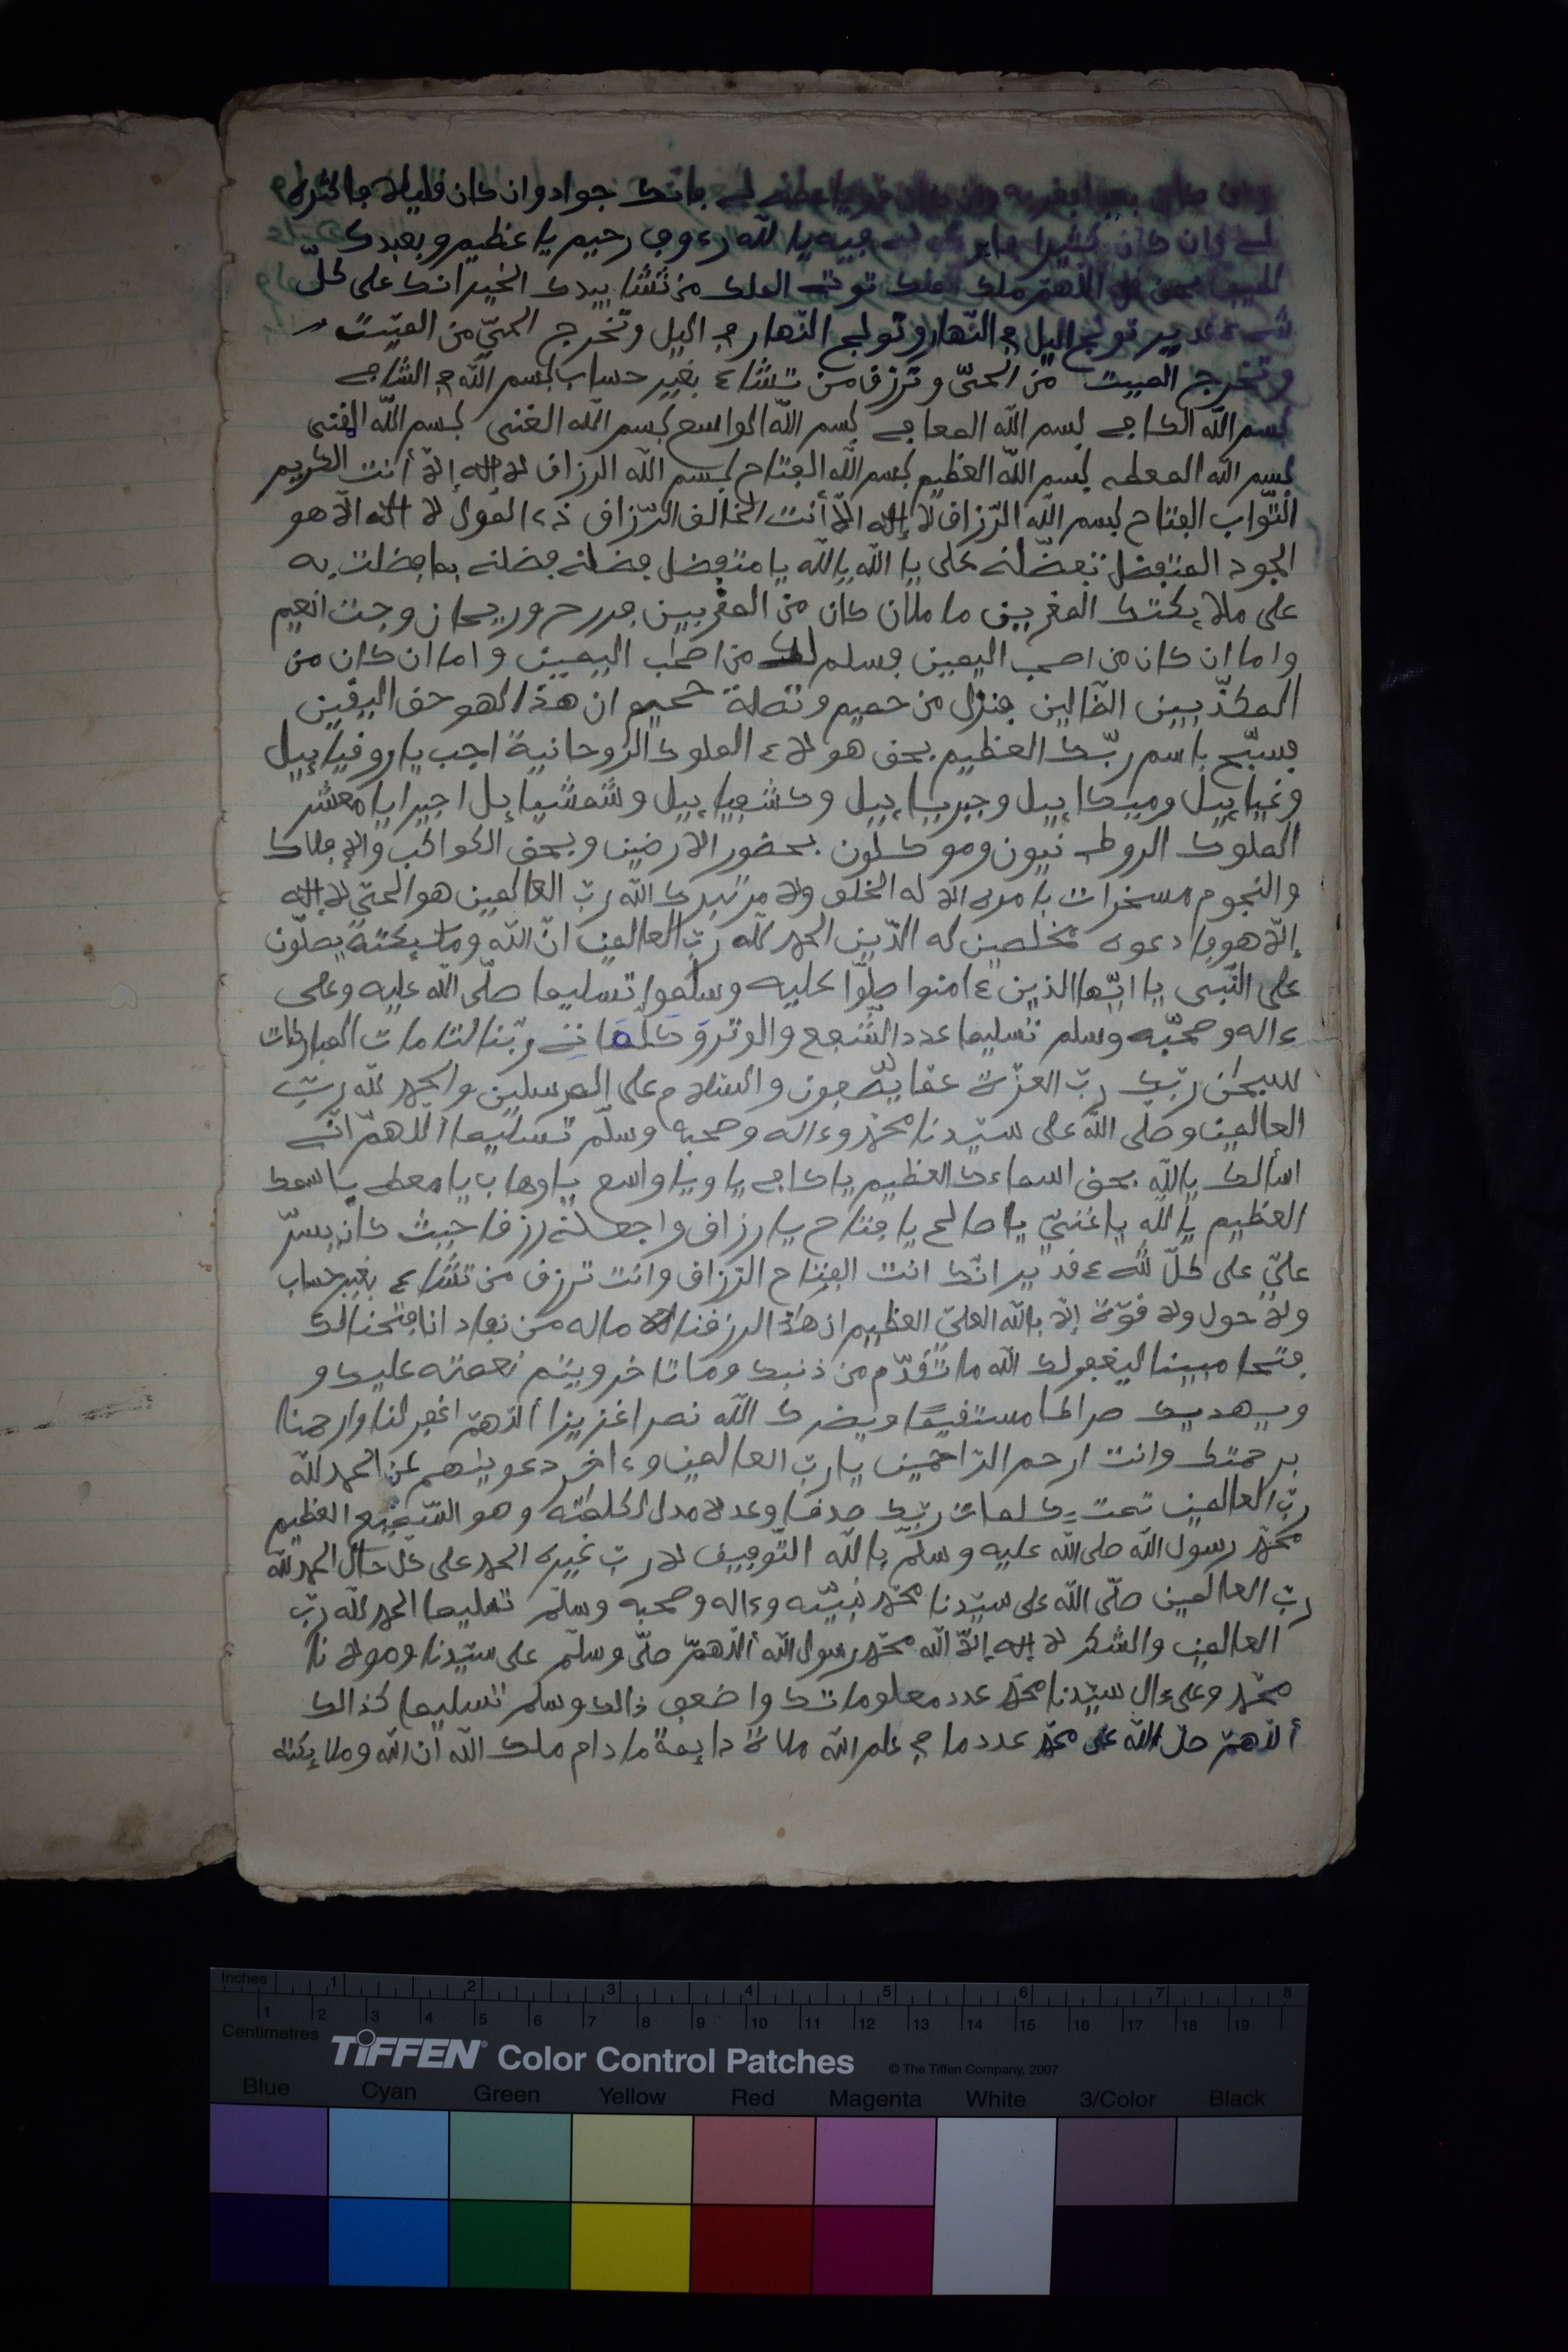 جوادوان كان فليلا فاكثره
لي وان كان كثيرا فابرك لي فيه يا الله رءوف رحيم يا عظيم وبعبدك
اللهم ملك الملك توتي الملك من تشا بيدك الخير انك على كلّ
شيء فدير تولج اليل في النّهار وتولج النّهار في اليل وتخرج الحيّ من الميّت
وتخرج الميت من الحيّ وترزف من تشاء بغير حساب بسم الله في الشافي
بسم الله الكافي بسم الله المعافي بسم الله الواسع بسم الله الغنى بسم الله المغنى
بسم الله المعطي بسم الله العظيم بسم الله الفتاح بسم الله الرزاف لا إله إلّا أنت الكريم
التّواب الفتاح بسم الله الرّزاف لا إله الّا أنت الخالف الرّزاف ذي الفول لا اله الّا هو
الجود المتفضل تفضّلنى على يا الله يا الله يا متفضل فضلنى فضلنى بما فضلت به
على ملايكتك المفربين ما ملان كان من المفربين فروح وريحان وجنت انعيم
واما ان كان من اصحب اليمين فسلم لك من اصحب اليمين واما ان كان من
المكذّبيين الضّالين فنزل من حميم وتصلية جحيم ان هذا لهو حف اليفين
فسبّح باسم ربّك العظيم بحف هولاء الملوك الرّوحانية اجب يا روفيايل
وعيايل وميكايل وجبرايل وكشفيايل وشمشيايل اجيرايا معشر
الملوك الروطـ نيون وموكلون بحضور الارضين وبحف الكواكب والافلاك
والنجوم مسخرات بامره الا له الخلف ولا مر تبرك الله ربّ العالمين هو الحيّ لا إله
إلّا هو فادعوه مخلصين له الدّين الحمد لله ربّ العالمين انّ الله وملئكته يصلّون
على النّبى يا ايّها الذين ءامنوا صلّوا عليه وسلموا تسليما صلّى الله عليه وعلى
ءاله وصحبه وسلم تسليما عدد الشّفع والوتر وكلمات ربّنا التامات المباركات
سبحن ربّك ربّ العزّة عما يصفون والسّلام على المرسلين والحمد لله ربّ
العالمين وصلى الله على سيّدنا محمّد وءاله وصحبه وسلّم تسليما أللهمّ انّي
اسألك يا الله بحف اسماءك العظيم يا كافي يا ويا واسع يا وهاب يا معطي باسمك
العظيم يا الله يا غنيّ يا صالح يا فتاح يا رزاف واجعلنى رزفا حيث كان يسرّ
عليّ على كلّ شيء فدير انّك انت الفتاح الرّزاف وانت ترزف من تشاء بغير حساب
ولا حول ولا فوّة إلّا بالله العليّ العظيم ان هذا لرزفنا ماله من نفاد انا فتحنا لك
فتحا مبينا ليغفر لك الله ما تفدّم من ذنبك وما تاخر ويتم نعمته عليك و
ويهديك صراطا مستفيما وينصرك الله نصرا عزيزا أللّهمّ اغفر لنا وارحمنا
برحمتك وانت ارحم الرّاحمين يا ربّ العالمين وءاخر دعويهم عن الحمد لله
ربّ العالمين تمت كلمات ربّك صدفا وعدلا مبدل لكلمته وهو السّميع العظيم
محمّد رسول الله صلى الله عليه وسلّم بالله التّوفيف لا ربّ غيره الحمد على كلّ حال الحمد لله
ربّ العالمين صلّى الله على سيّدنا محمّد نبيّه وءاله وصحبه وسلّم تسليما الحمد لله ربّ
العالمين والشكر لا إله إلّا الله محمّد رسول الله أللّهمّ صلّى وسلّم على سيّدنا ومولانا
محمّد وعلى ءال سيّدنا محمّد عدد معلوماتك واضعف ذالك وسلم تسليما كذالك
أللّهمّ صلّ الله على محمّد عدد ما في علم الله صلاة دايمة ما دام ملك الله ان الله وملايكته
Inches 1 2 3 4 5 6 7 8
Centimetres 1 2 3 4 5 6 7 8 9 10 11 12 13 14 15 16 17 18 19
TIFFEN® Color Control Patches © The Tiffen Company, 2007
Blue Cyan Green Yellow Red Magenta White 3/Color Black